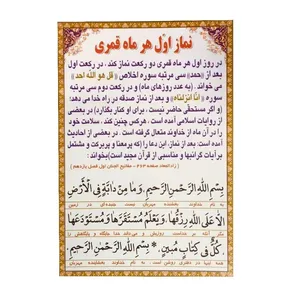 نماز اوّل هر ماه قمری
در روز اول هر ماه قمری دو رکعت نماز کند، در رکعت اول
بعد از «حمد» سی مرتبه سوره اخلاص «قل هو الله احد»
می خواند، (به عدد روزهای ماه) و در رکعت دوم سی مرتبه
سوره «انّا انزلناه» و بعد از نماز صدقه در راه خدا می دهد؛
و اگر مستحقی حاضر نیست، برای او کنار بگذارد) در بعضی
از روایات اسلامی آمده است: هرکس چنین کند، سلامت خود
را در آن ماه از خداوند متعال گرفته است. در بعضی از احادیث
آمده است، که (هرمشکلی دارد به فرمان پروردگار و برکت و
مرحمت او برطرف می شود)، و بعد از نماز، این را که مشتمل بر
آیات گرانبها و مناسبی از قرآن مجید است؛ بخواند:
بِسْمِ اللهِ الرَّحْمٰنِ الرَّحیمِ. وَ ما مِنْ دابَّةٍ فِی الْأَرْضِ
اِلّا عَلَی اللهِ رِزْقُها. وَ یَعْلَمُ مُسْتَقَرَّها وَ مُسْتَوْدَعَها
کُلٌّ فی کِتابٍ مُبینٍ. * بِسْمِ اللهِ الرَّحْمٰنِ الرَّحیمِ.